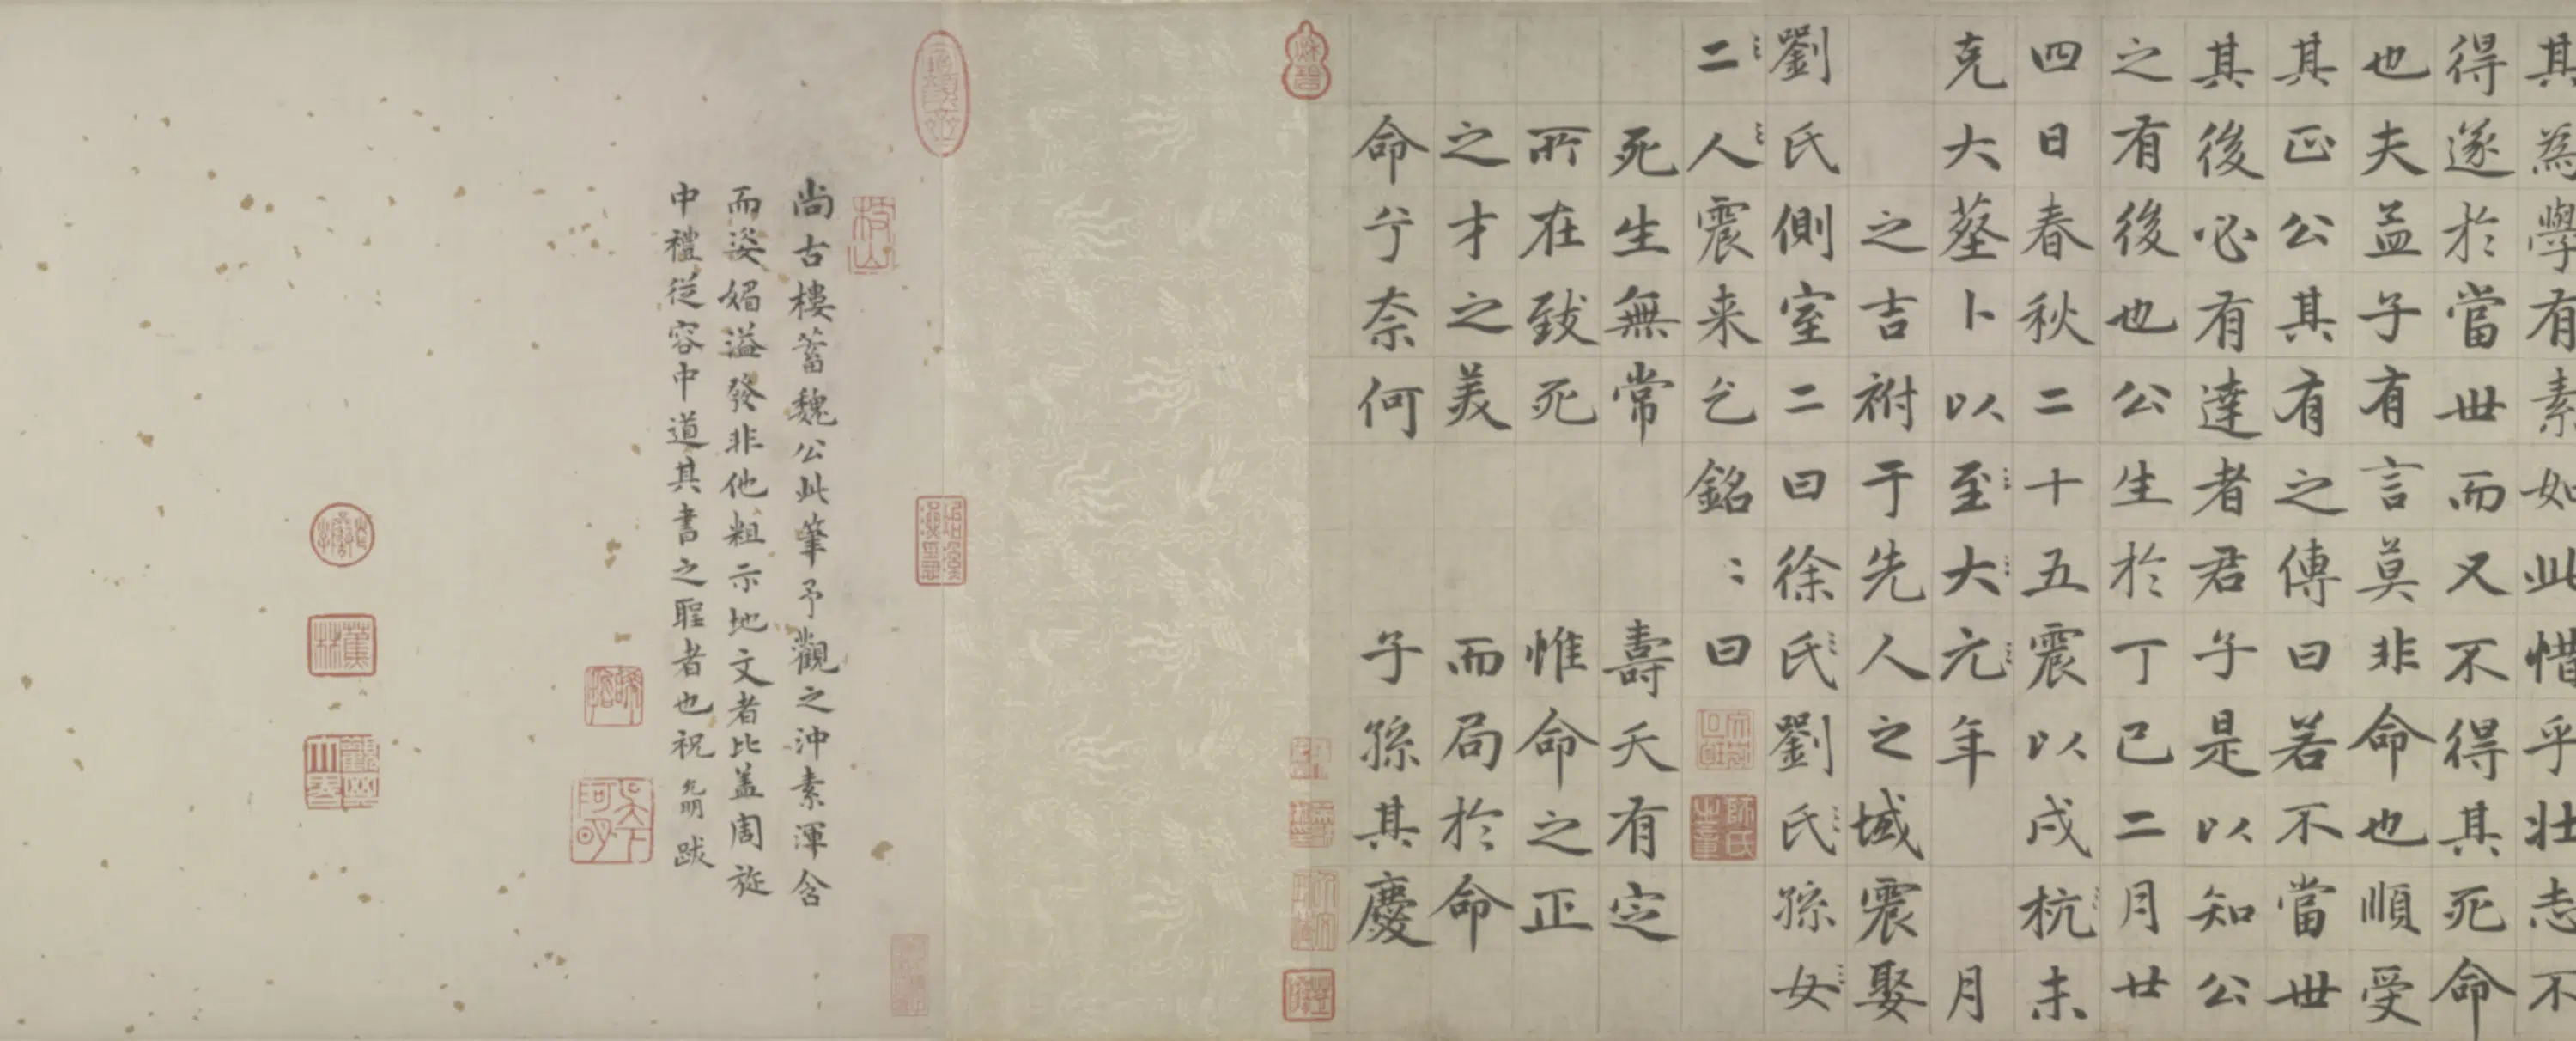 其為學有素如此惜乎壯志不
得遂於當世而又不得其死命
也夫孟子有言莫非命也順受
其正公其有之傳曰若不當世
其後必有達者君子是以知公
之有後也公生於丁巳二月廿
四日春秋二十五震以戌杭未
克大葬卜以至大元年 月
之吉祔于先人之域震娶
劉氏側室二曰徐氏劉氏孫女
二人震来乞銘:曰
死生無常 壽夭有定
所在致死 惟命之正
之才之美 而局於命
命兮奈何 子孫其慶
枝山
尚古樓蓄魏公此筆予觀之沖素渾含
而姿媚溢發非他粗示地文者比蓋周旋
中禮從容中道其書之聖者也祝允明跋
蕉林